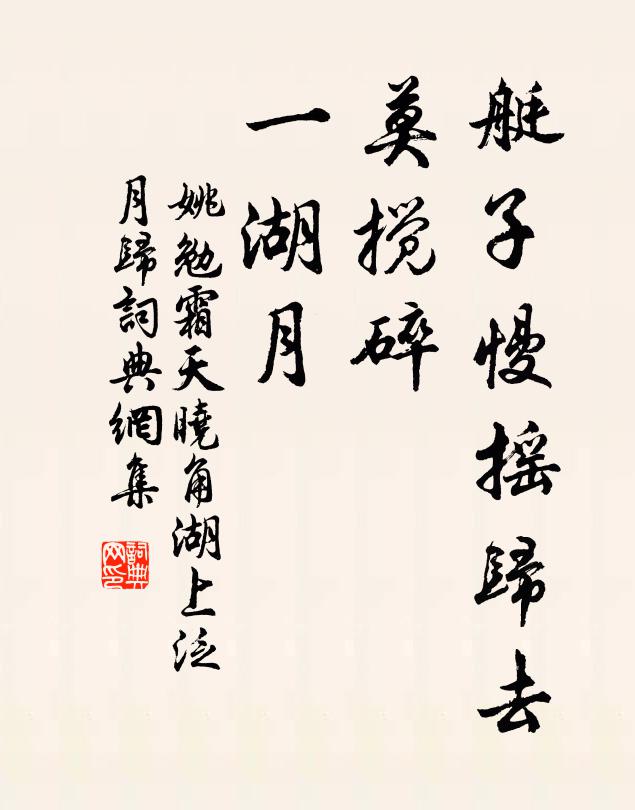 艇子慢摇歸去
莫攪碎
一湖月
姚勉霜天曉角湖上泛
月歸詞典網集
詞典
网印